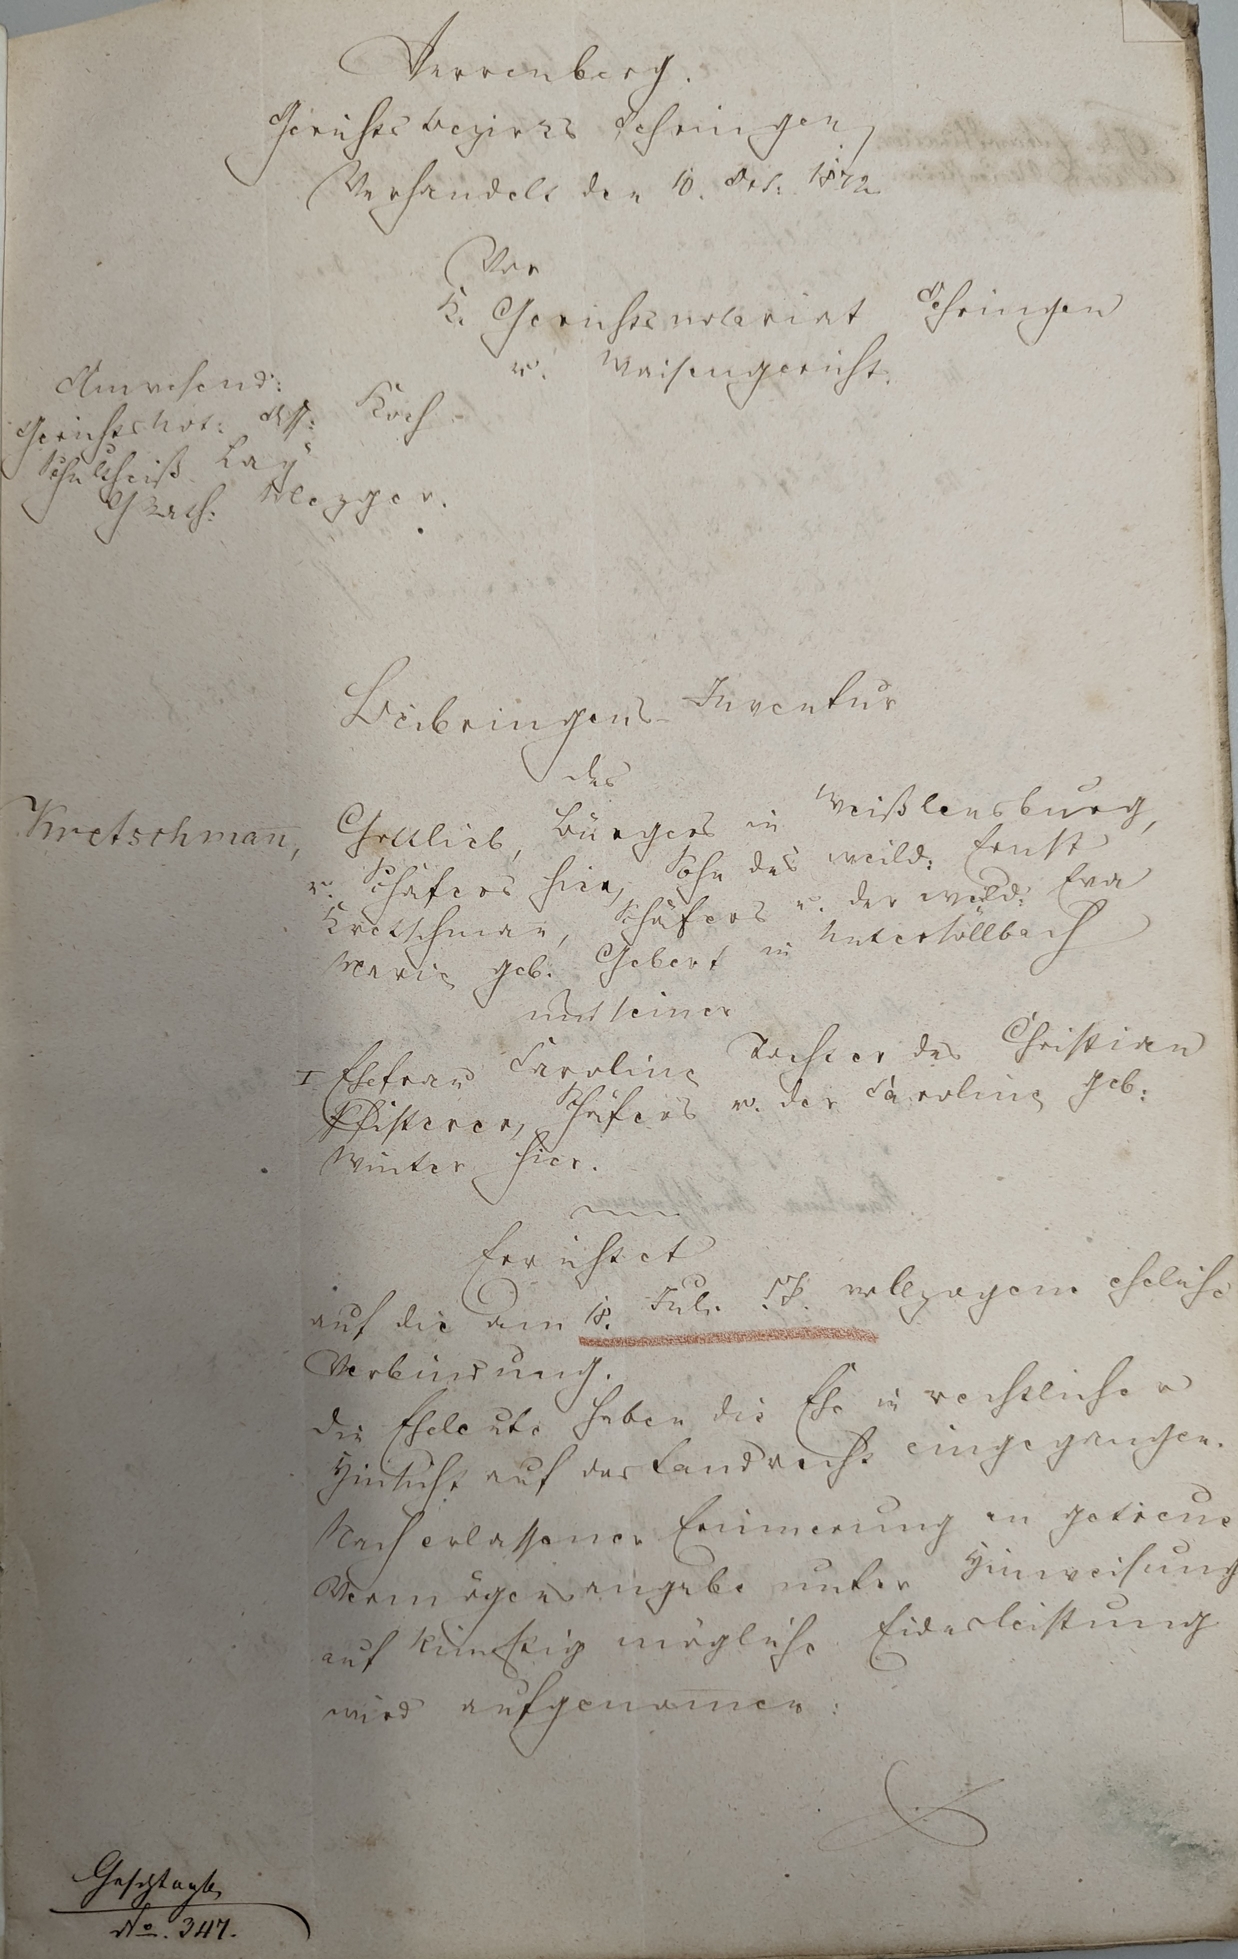 Verrenberg.
Gerichtsbezirks Oehringen,
Verhandelt den 10. Okt: 1872
Vor
K. Gerichtsnotariat Oehringen
u. Waisengericht.
Anwesend:
Gerichtsnot: Ass: Koch
Schultheiß Lay
GRath: Mezger.
Beibringens-Inventur
des
Kretschman̅,
Gottlieb, Bürgers in Weißlensburg,
u. Schäfers hier, Sohn des weild: Ernst
Kretschman, Schäfers u. der weild: Eva
Marie geb: Gebert in Untersöllbach
und seiner
I Ehefrau Caroline Tochter des Christian
Pfisterer, Schäfers u. der Caroline geb:
Winter hier.
Errichtet
auf die am 18. Juli d. J. vollzogene eheliche
Verbindung.
Die Eheleute haben die Ehe in rechtlicher
Hinsicht auf das Landrecht eingegangen.
Nach erlassener Erinnerung an getreue
Vermögensangabe unter Hinweisung
auf künftig mögliche Eidesleistung
wird aufgenom̅en:
No. 347.